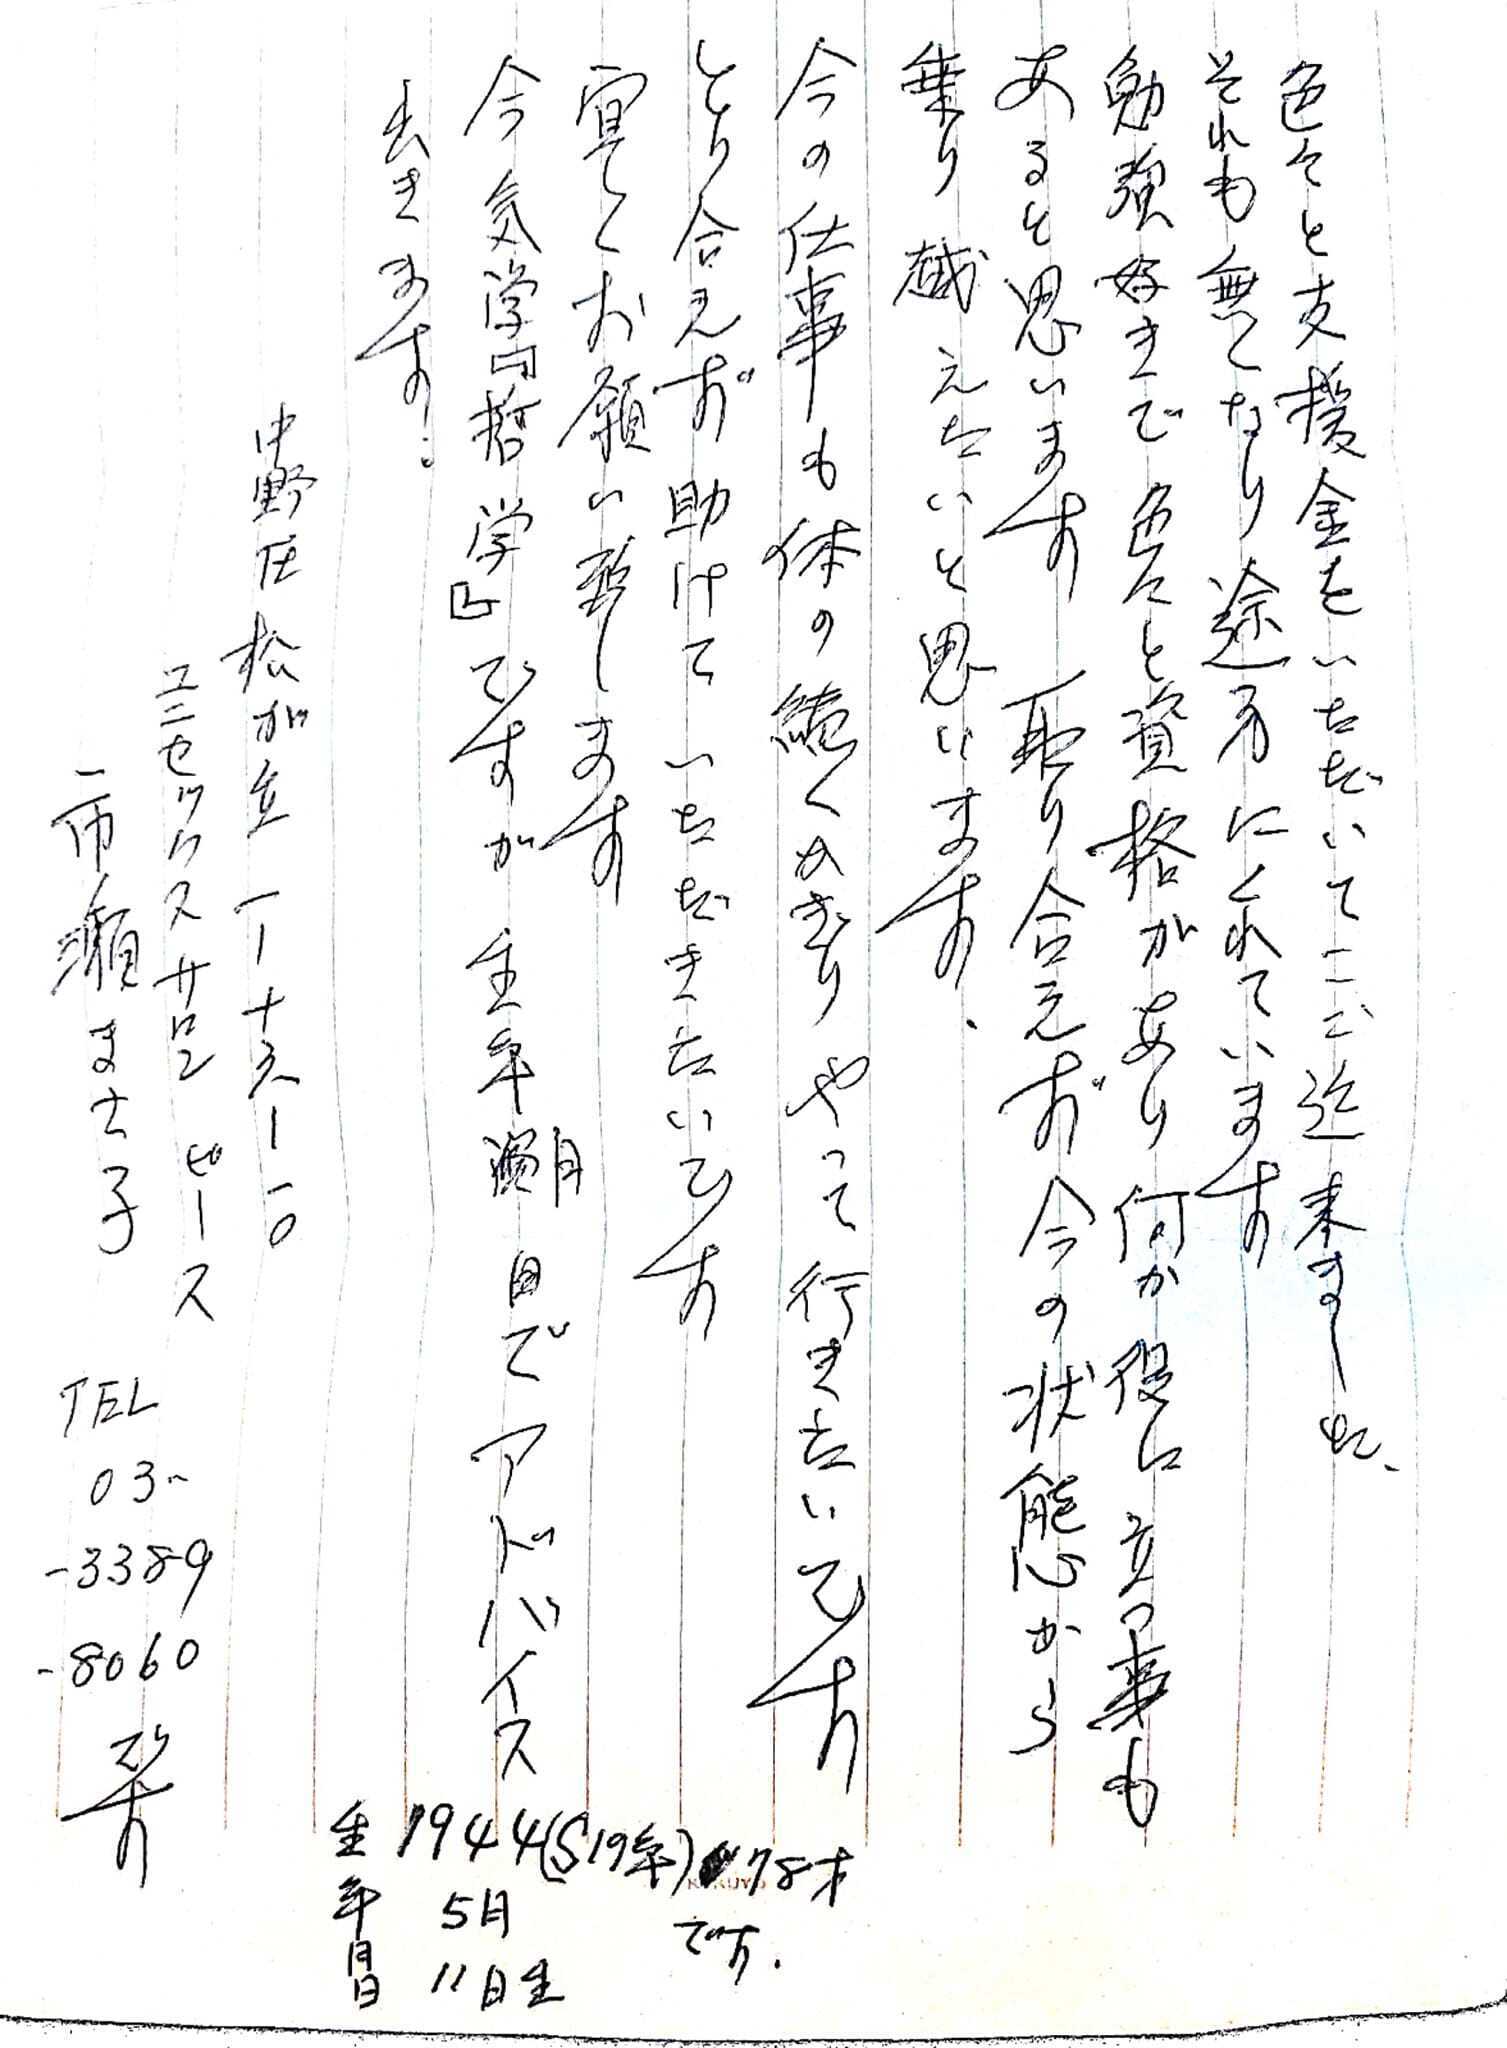 色々と支援金をいただいてここ迄来ました、
それも無くなり途方にくれています
勉強好きで色々と資格があり何か役に立つ事も
あると思います 取り合えず今の状態から
乗り越えたいと思います.
今の仕事も体の続くかぎりやって行きたいです
とり合えず助けていただきたいです
宜しくお願い致します
今気学『哲学』ですが 生年月日でアドバイス
出来ます.
中野区松が丘 一ー十六ー一〇
ユニセックスサロン ピース
一市瀬まち子
TEL
03-
-3389
-8060
です
生年月日
1944(S19年) 78才です.
5月
11日生